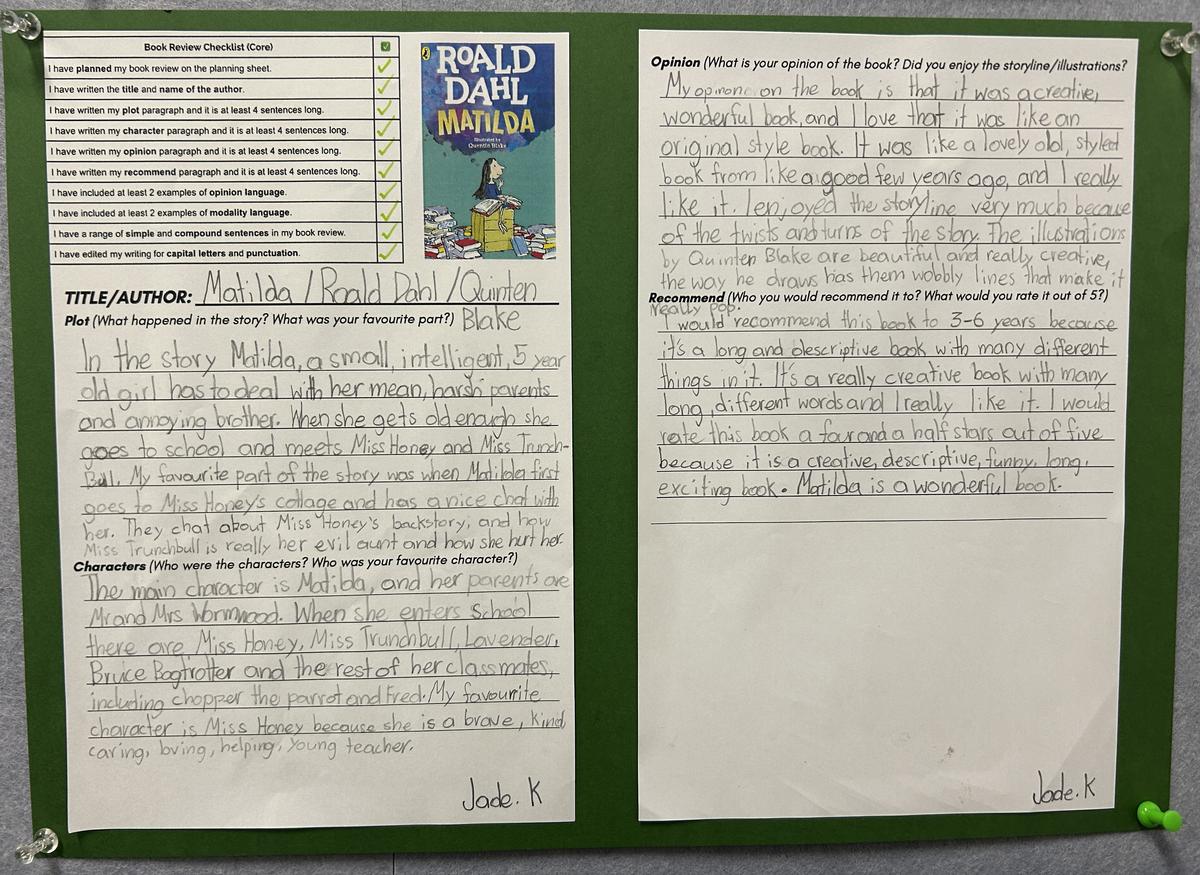 Book Review Checklist (Core)
I have planned my book review on the planning sheet.
I have written the title and name of the author.
I have written my plot paragraph and it is at least 4 sentences long.
I have written my character paragraph and it is at least 4 sentences long.
I have written my opinion paragraph and it is at least 4 sentences long.
I have written my recommend paragraph and it is at least 4 sentences long.
I have included at least 2 examples of opinion language.
I have included at least 2 examples of modality language.
I have a range of simple and compound sentences in my book review.
I have edited my writing for capital letters and punctuation.
ROALD
DAHL
MATILDA
Illustrated by
Quentin Blake
TITLE/AUTHOR: Matilda / Roald Dahl / Quinten
Plot (What happened in the story? What was your favourite part?) Blake
In the story Matilda, a small, intelligent, 5 year
old girl has to deal with her mean, harsh parents
and annoying brother. When she gets old enough she
goes to school and meets Miss Honey and Miss Trunch-
Bull. My favourite part of the story was when Matilda first
goes to Miss Honey's cottage and has a nice chat with
her. They chat about Miss Honey's backstory, and how
Miss Trunchbull is really her evil aunt and how she hurt her.
Characters (Who were the characters? Who was your favourite character?)
The main character is Matilda, and her parents are
Mr and Mrs Wormwood. When she enters School
there are Miss Honey, Miss Trunchbull, Lavender,
Bruce Bogtrotter and the rest of her classmates,
including chopper the parrot and Fred. My favourite
character is Miss Honey because she is a brave, kind
caring, loving, helping, young teacher.
Jade. K
Opinion (What is your opinion of the book? Did you enjoy the storyline/illustrations?
My opinonc on the book is that it was a creative,
wonderful book, and I love that it was like an
original style book. It was like a lovely old, styled
book from like a good few years ago, and I really
like it. I enjoyed the storyline very much because
of the twists and turns of the story. The illustrations
by Quinten Blake are beautiful and really creative,
the way he draws has them wobbly lines that make it
Recommend (Who you would recommend it to? What would you rate it out of 5?)
really pop.
I would recommend this book to 3-6 years because
it's a long and descriptive book with many different
things in it. It's a really creative book with many
long, different words and I really like it. I would
rate this book a four and a half stars out of five
because it is a creative, descriptive, funny, long,
exciting book. Matilda is a wonderful book.
Jade. K